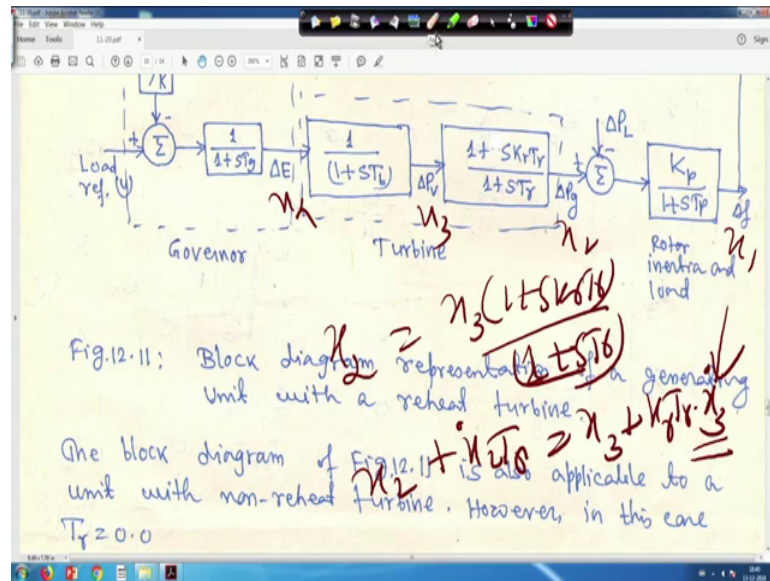 11-20.pdf - Adobe Acrobat Reader DC
File Edit View Window Help
Home Tools 11-20.pdf × Sign
10 / 14 200%
1/R
- ΔP_L
+ Σ 1/(1+ST_g) ΔE 1/(1+ST_t) ΔP_v (1+SK_rT_r)/(1+ST_r) ΔP_g + - Σ K_p/(1+ST_p) Δf
Load
ref. (u)
x_4 x_3 x_2 x_1
Governor Turbine Rotor
inertia and
load
x_2 = x_3(1+SK_rT_r)/(1+ST_r)
Fig.12.11: Block diagram representation of a generating
unit with a reheat turbine.
x_2 + ẋ_2T_r = x_3 + K_rT_r.ẋ_3
The block diagram of Fig.12.11 is also applicable to a
unit with non-reheat turbine. However, in this case
T_r = 0.0
8.49 x 7.28 in